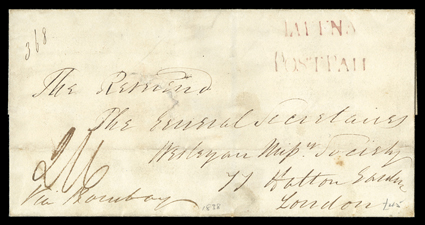 368
POST PAID
The Reverend
The General Secretaries
Wesleyan Missy Society
77 Hatton Garden
London
2/6
Via Bombay
1838